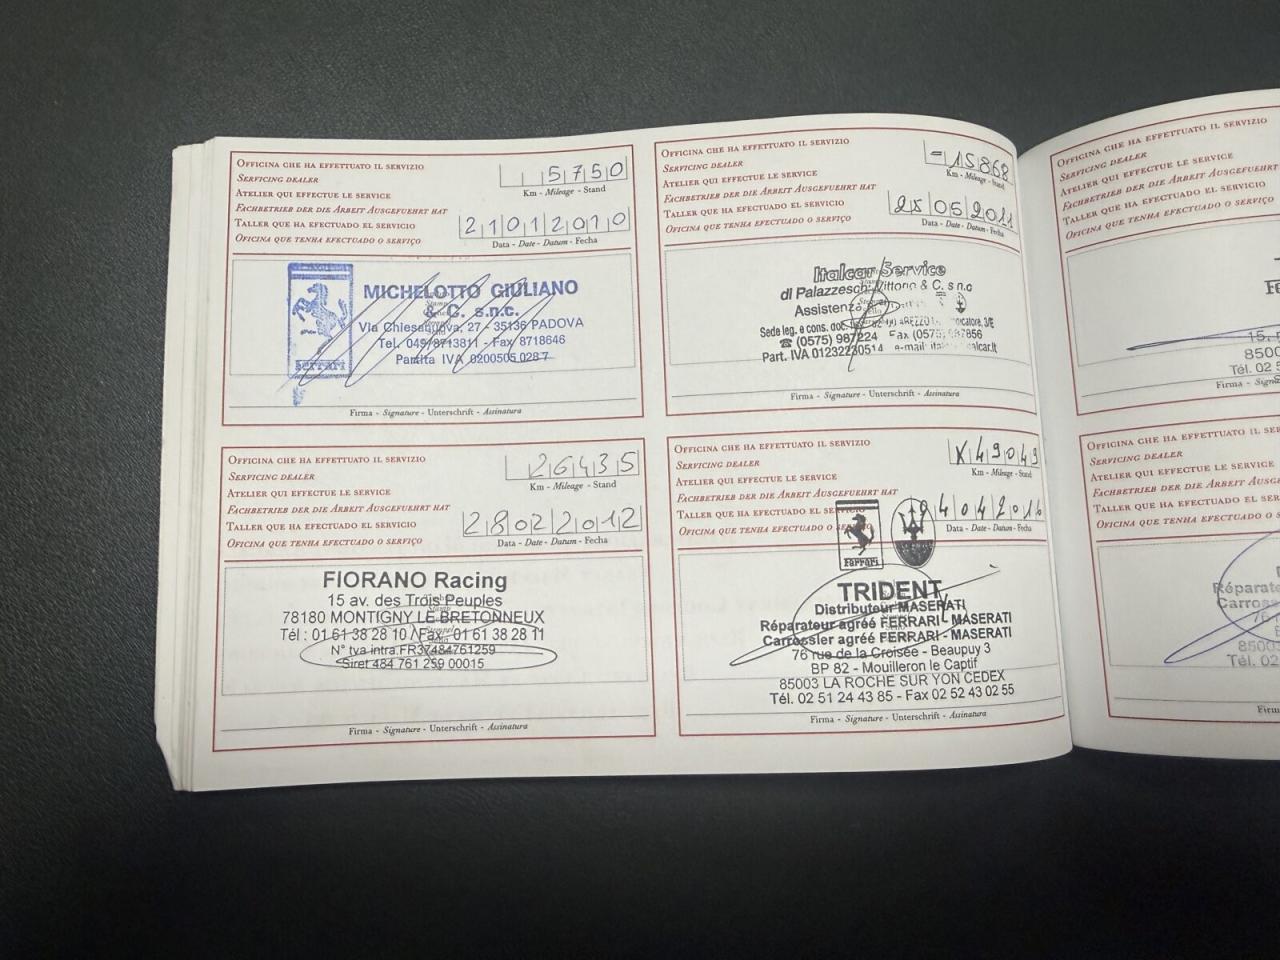 OFFICINA CHE HA EFFETTUATO IL SERVIZIO
SERVICING DEALER
ATELIER QUI EFFECTUE LE SERVICE
FACHBETRIEB DER DIE ARBEIT AUSGEFUEHRT HAT
TALLER QUE HA EFECTUADO EL SERVICIO
OFICINA QUE TENHA EFECTUADO O SERVIÇO
5750
Km - Mileage - Stand
21012010
Data - Date - Datum - Fecha
MICHELOTTO GIULIANO
& C. s.n.c.
Via Chiesanuova, 27 - 35136 PADOVA
Tel. 049/8713811 - Fax 8718646
Partita IVA 0200505 028 7
Ferrari
Firma - Signature - Unterschrift - Assinatura
OFFICINA CHE HA EFFETTUATO IL SERVIZIO
SERVICING DEALER
ATELIER QUI EFFECTUE LE SERVICE
FACHBETRIEB DER DIE ARBEIT AUSGEFUEHRT HAT
TALLER QUE HA EFECTUADO EL SERVICIO
OFICINA QUE TENHA EFECTUADO O SERVIÇO
-15868
Km - Mileage - Stand
25052011
Data - Date - Datum - Fecha
Italcar Service
di Palazzeschi Vittorio & C. s.n.c
Assistenza
Sede leg. e cons. doc. AREZZO
☎ (0575) 987224 Fax (0575) 987856
Part. IVA 01232230514 e-mail:
Firma - Signature - Unterschrift - Assinatura
OFFICINA CHE HA EFFETTUATO IL SERVIZIO
SERVICING DEALER
ATELIER QUI EFFECTUE LE SERVICE
FACHBETRIEB DER DIE ARBEIT AUSGEFUEHRT HAT
TALLER QUE HA EFECTUADO EL SERVICIO
OFICINA QUE TENHA EFECTUADO O SERVIÇO
26435
Km - Mileage - Stand
28022012
Data - Date - Datum - Fecha
FIORANO Racing
15 av. des Trois Peuples
78180 MONTIGNY LE BRETONNEUX
Tél : 01 61 38 28 10 / Fax : 01 61 38 28 11
N° tva intra.FR37484761259
Siret 484 761 259 00015
Firma - Signature - Unterschrift - Assinatura
OFFICINA CHE HA EFFETTUATO IL SERVIZIO
SERVICING DEALER
ATELIER QUI EFFECTUE LE SERVICE
FACHBETRIEB DER DIE ARBEIT AUSGEFUEHRT HAT
TALLER QUE HA EFECTUADO EL SERVICIO
OFICINA QUE TENHA EFECTUADO O SERVIÇO
X49049
Km - Mileage - Stand
04042016
Data - Date - Datum - Fecha
Ferrari
TRIDENT
Distributeur MASERATI
Réparateur agréé FERRARI - MASERATI
Carrossier agréé FERRARI - MASERATI
76 rue de la Croisée - Beaupuy 3
BP 82 - Mouilleron le Captif
85003 LA ROCHE SUR YON CEDEX
Tél. 02 51 24 43 85 - Fax 02 52 43 02 55
Firma - Signature - Unterschrift - Assinatura
OFFICINA CHE HA EFFETTUATO IL SERVIZIO
SERVICING DEALER
ATELIER QUI EFFECTUE LE SERVICE
FACHBETRIEB DER DIE ARBEIT AUSGEFUEHRT
TALLER QUE HA EFECTUADO EL SERVICIO
OFICINA QUE TENHA EFECTUADO O SERVIÇO
Tél. 02 5
Firma
OFFICINA CHE HA EFFETTUATO IL
SERVICING DEALER
ATELIER QUI EFFECTUE LE SERVICE
FACHBETRIEB DER DIE ARBEIT
TALLER QUE HA EFECTUADO EL
OFICINA QUE TENHA EFECTUADO O
Réparate
Carross
85003
Tél. 02